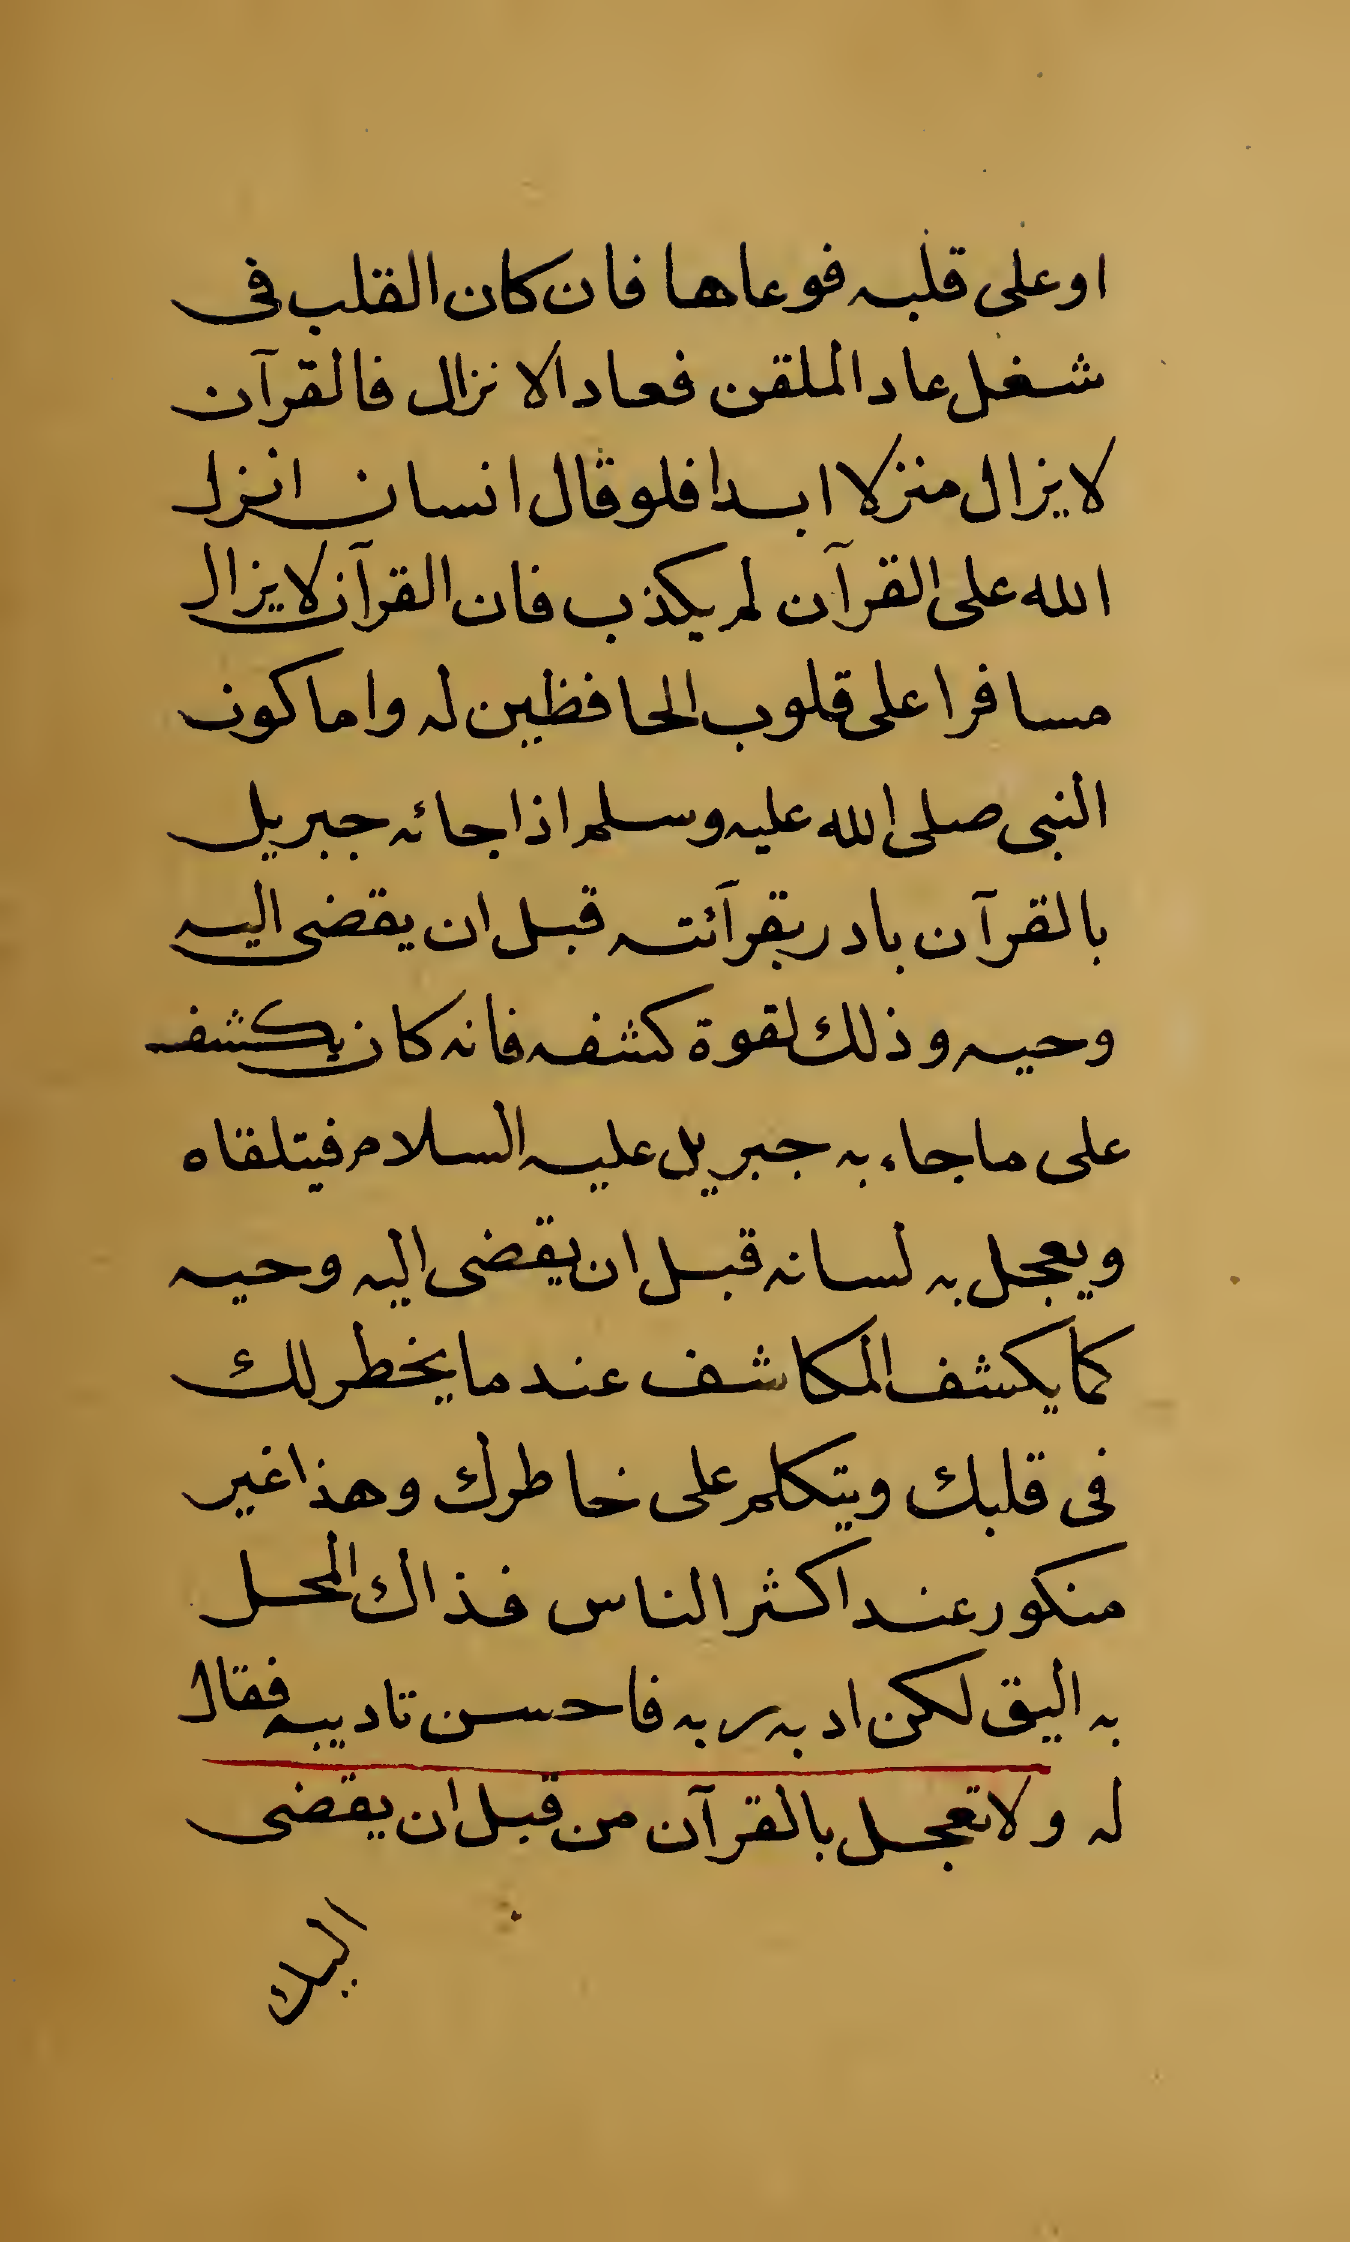 او على قلبه فوعاها فان كان القلب فى
شغل عاد الملقن فعاد الانزال فالقرآن
لا يزال منزلا ابدا فلو قال انسان انزل
الله على القرآن لم يكذب فان القرآن لا يزال
مسافرا على قلوب الحافظين له واما كون
النبى صلى الله عليه وسلم اذا جائه جبريل
بالقرآن بادر بقرآئته قبل ان يقضى اليه
وحيه وذلك لقوة كشفه فانه كان يكشف
على ما جاء به جبريل عليه السلام فيتلقاه
ويعجل به لسانه قبل ان يقضى اليه وحيه
كما يكشف المكاشف عند ما يخطر لك
فى قلبك ويتكلم على خاطرك وهذا غير
منكور عند اكثر الناس فذاك المحل
به اليق لكن ادبه ربه فاحسن تاديبه فقال
له ولا تعجل بالقرآن من قبل ان يقضى
اليك